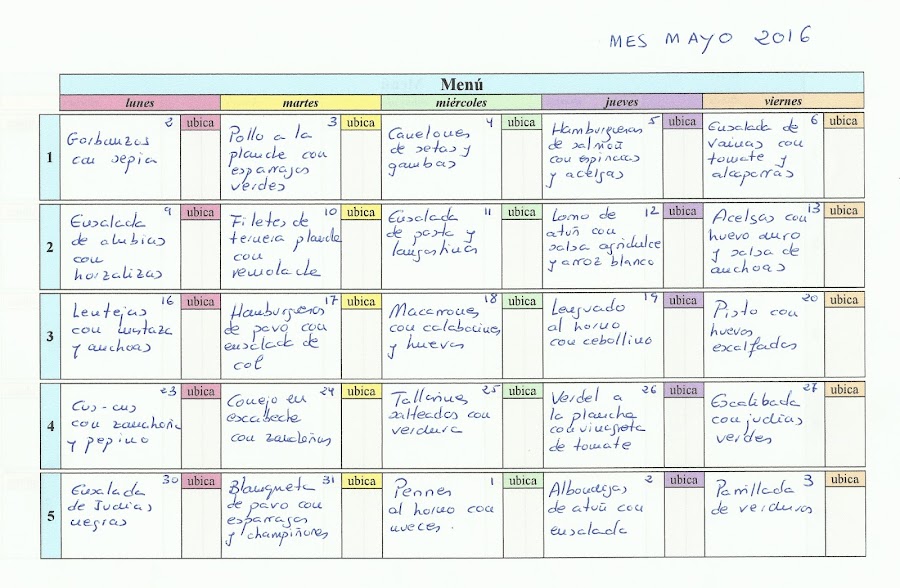 MES MAYO 2016
Menú
lunes martes miércoles jueves viernes
1
2 ubica
Garbanzos
con sepia
3 ubica
Pollo a la
plancha con
esparragos
verdes
4 ubica
Canelones
de setas y
gambas
5 ubica
Hamburguesas
de salmón
con espinacas
y acelgas
6 ubica
Ensalada de
vainas con
tomate y
alcaparras
2
9 ubica
Ensalada
de alubias
con
hortalizas
10 ubica
Filetes de
ternera plancha
con
remolacha
11 ubica
Ensalada
de pasta y
langostinos
12 ubica
Lomo de
atún con
salsa agridulce
y arroz blanco
13 ubica
Acelgas con
huevo duro
y salsa de
anchoas
3
16 ubica
Lentejas
con mostaza
y anchoas
17 ubica
Hamburguesas
de pavo con
ensalada de
col
18 ubica
Macarrones
con calabacines
y huevos
19 ubica
Lenguado
al horno
con cebollino
20 ubica
Pisto con
huevos
escalfados
4
23 ubica
Cus-cus
con zanahoria
y pepino
24 ubica
Conejo en
escabeche
con zanahorias
25 ubica
Tallarines
salteados con
verdura
26 ubica
Verdel a
la plancha
con vinagreta
de tomate
27 ubica
Escalibada
con judias
verdes
5
30 ubica
Ensalada
de Judias
negras
31 ubica
Blanqueta
de pavo con
esparragos
y champiñones
1 ubica
Pennes
al horno con
nueces.
2 ubica
Albondigas
de atún con
ensalada
3 ubica
Parrillada
de verduras